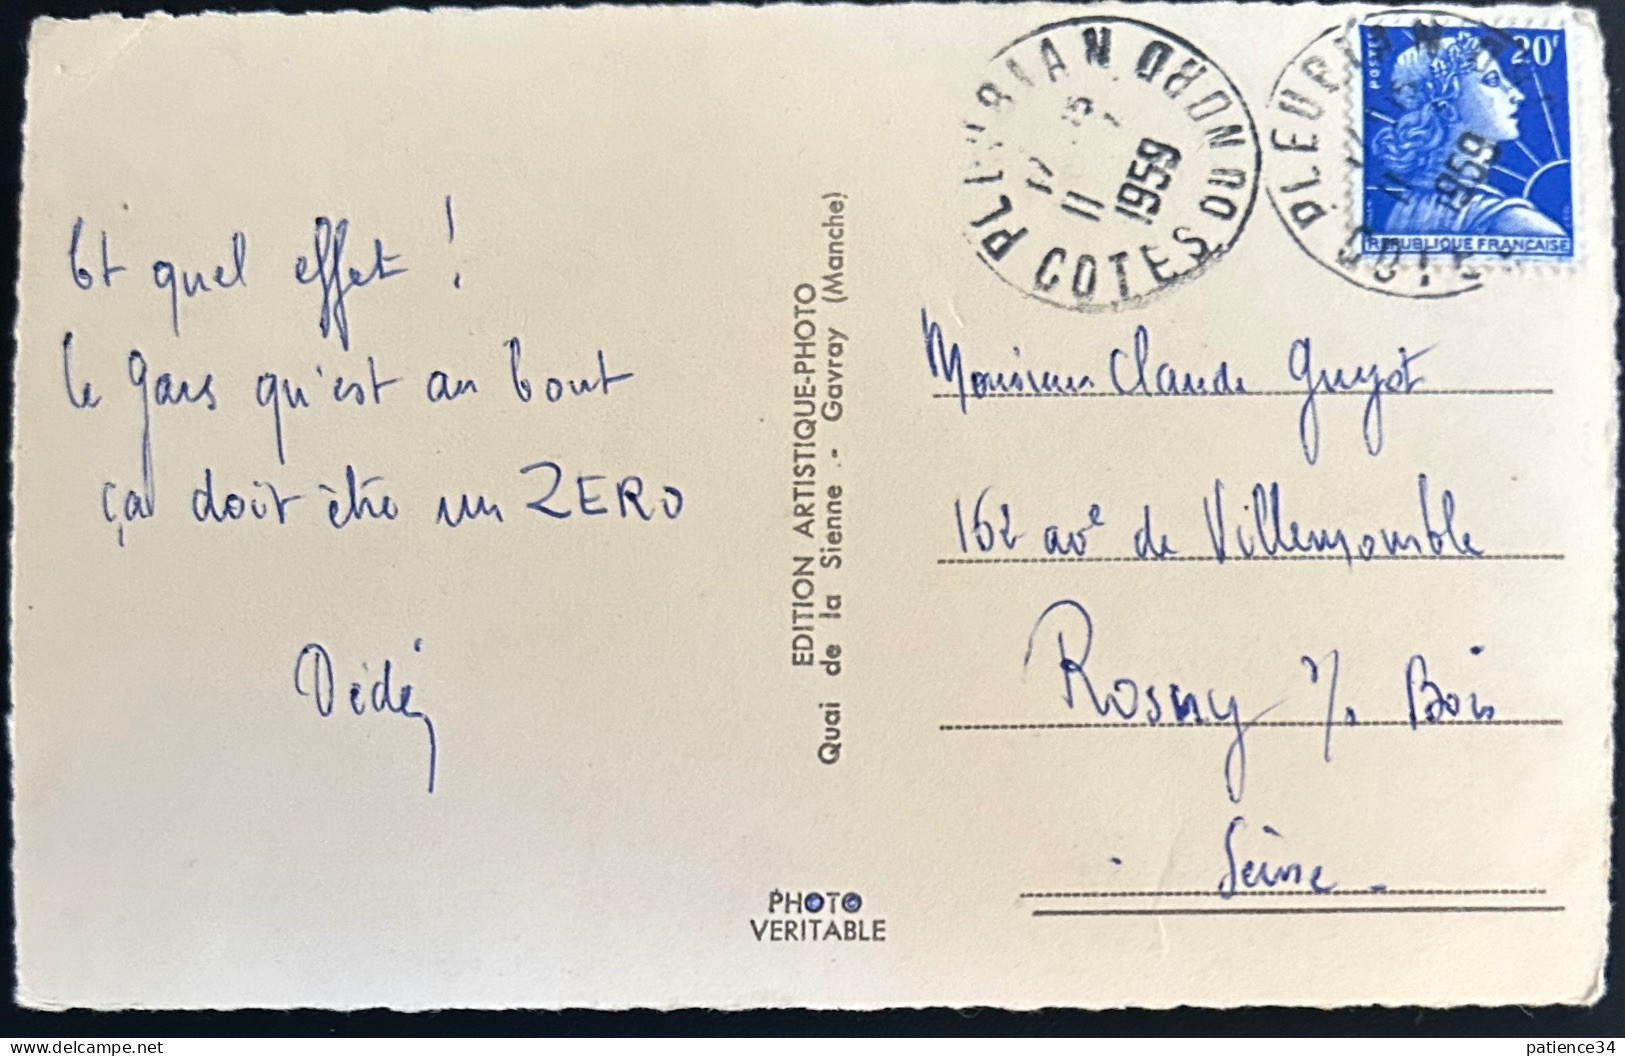 Et quel effet !
le gars qu'est au bout
ça doit être un ZERO
Dédé
EDITION ARTISTIQUE-PHOTO
Quai de la Sienne .- Gavray (Manche)
PHOTO
VERITABLE
PLEURIAN COTES DU NORD
11 1959
PLEURIAN
11
1959
COTES
POSTES
20F
REPUBLIQUE FRANÇAISE
Monsieur Claude Guyot
162 ave de Villemomble
Rosny s/s Bois
Seine -
patience34